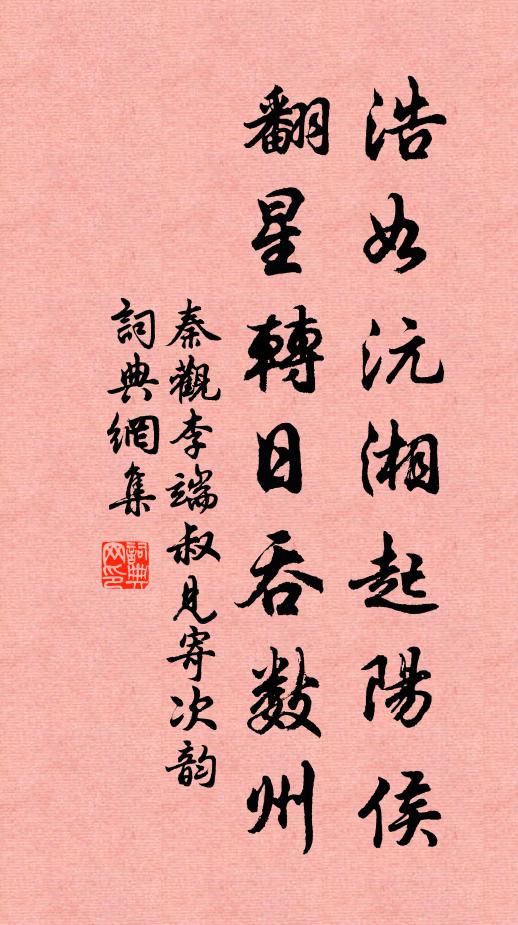 浩如沅湘起陽侯
翻星轉日吞數州
秦觀李端叔見寄次韵
詞典網集
詞典網印